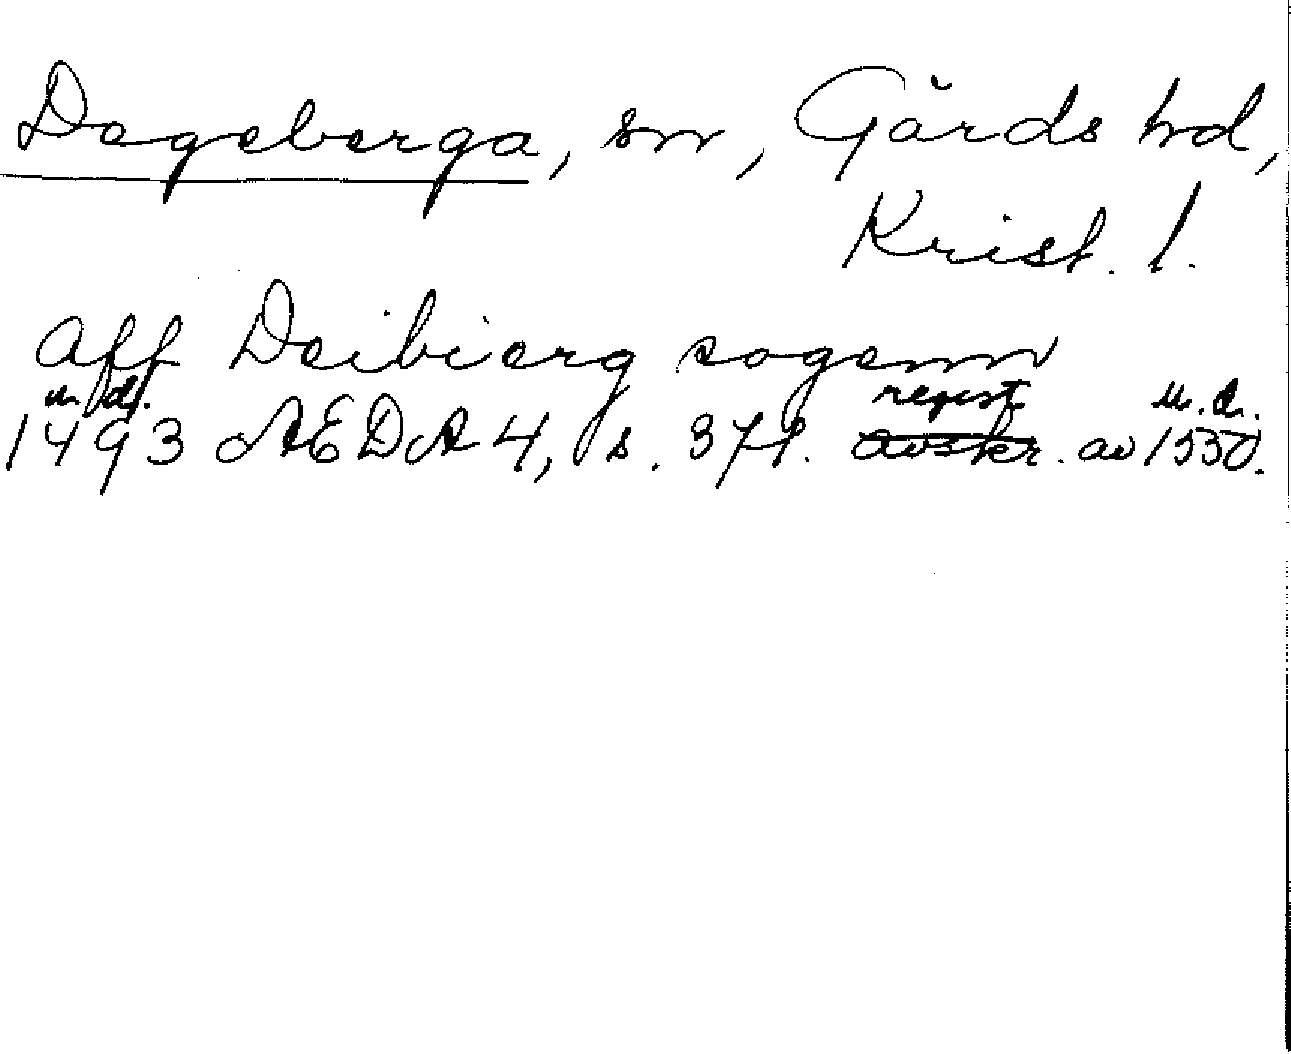 Degeberga, sn, Gärds hd,
Krist. l.
aff Deibierg sogenn
u. d.
1493 ÆDA 4, s. 371. regest avskr. av 1550.